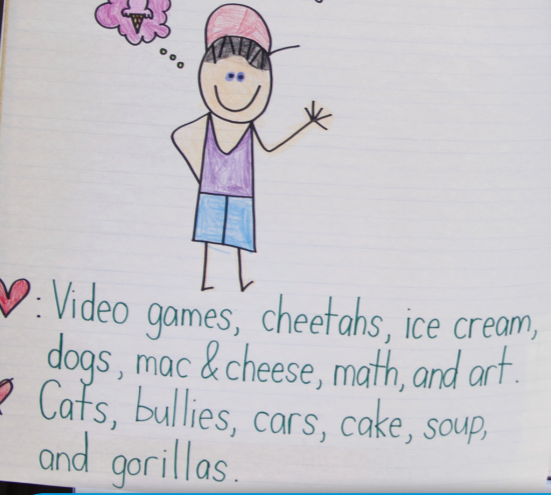 : Video games, cheetahs, ice cream,
dogs, mac & cheese, math, and art.
Cats, bullies, cars, cake, soup,
and gorillas.